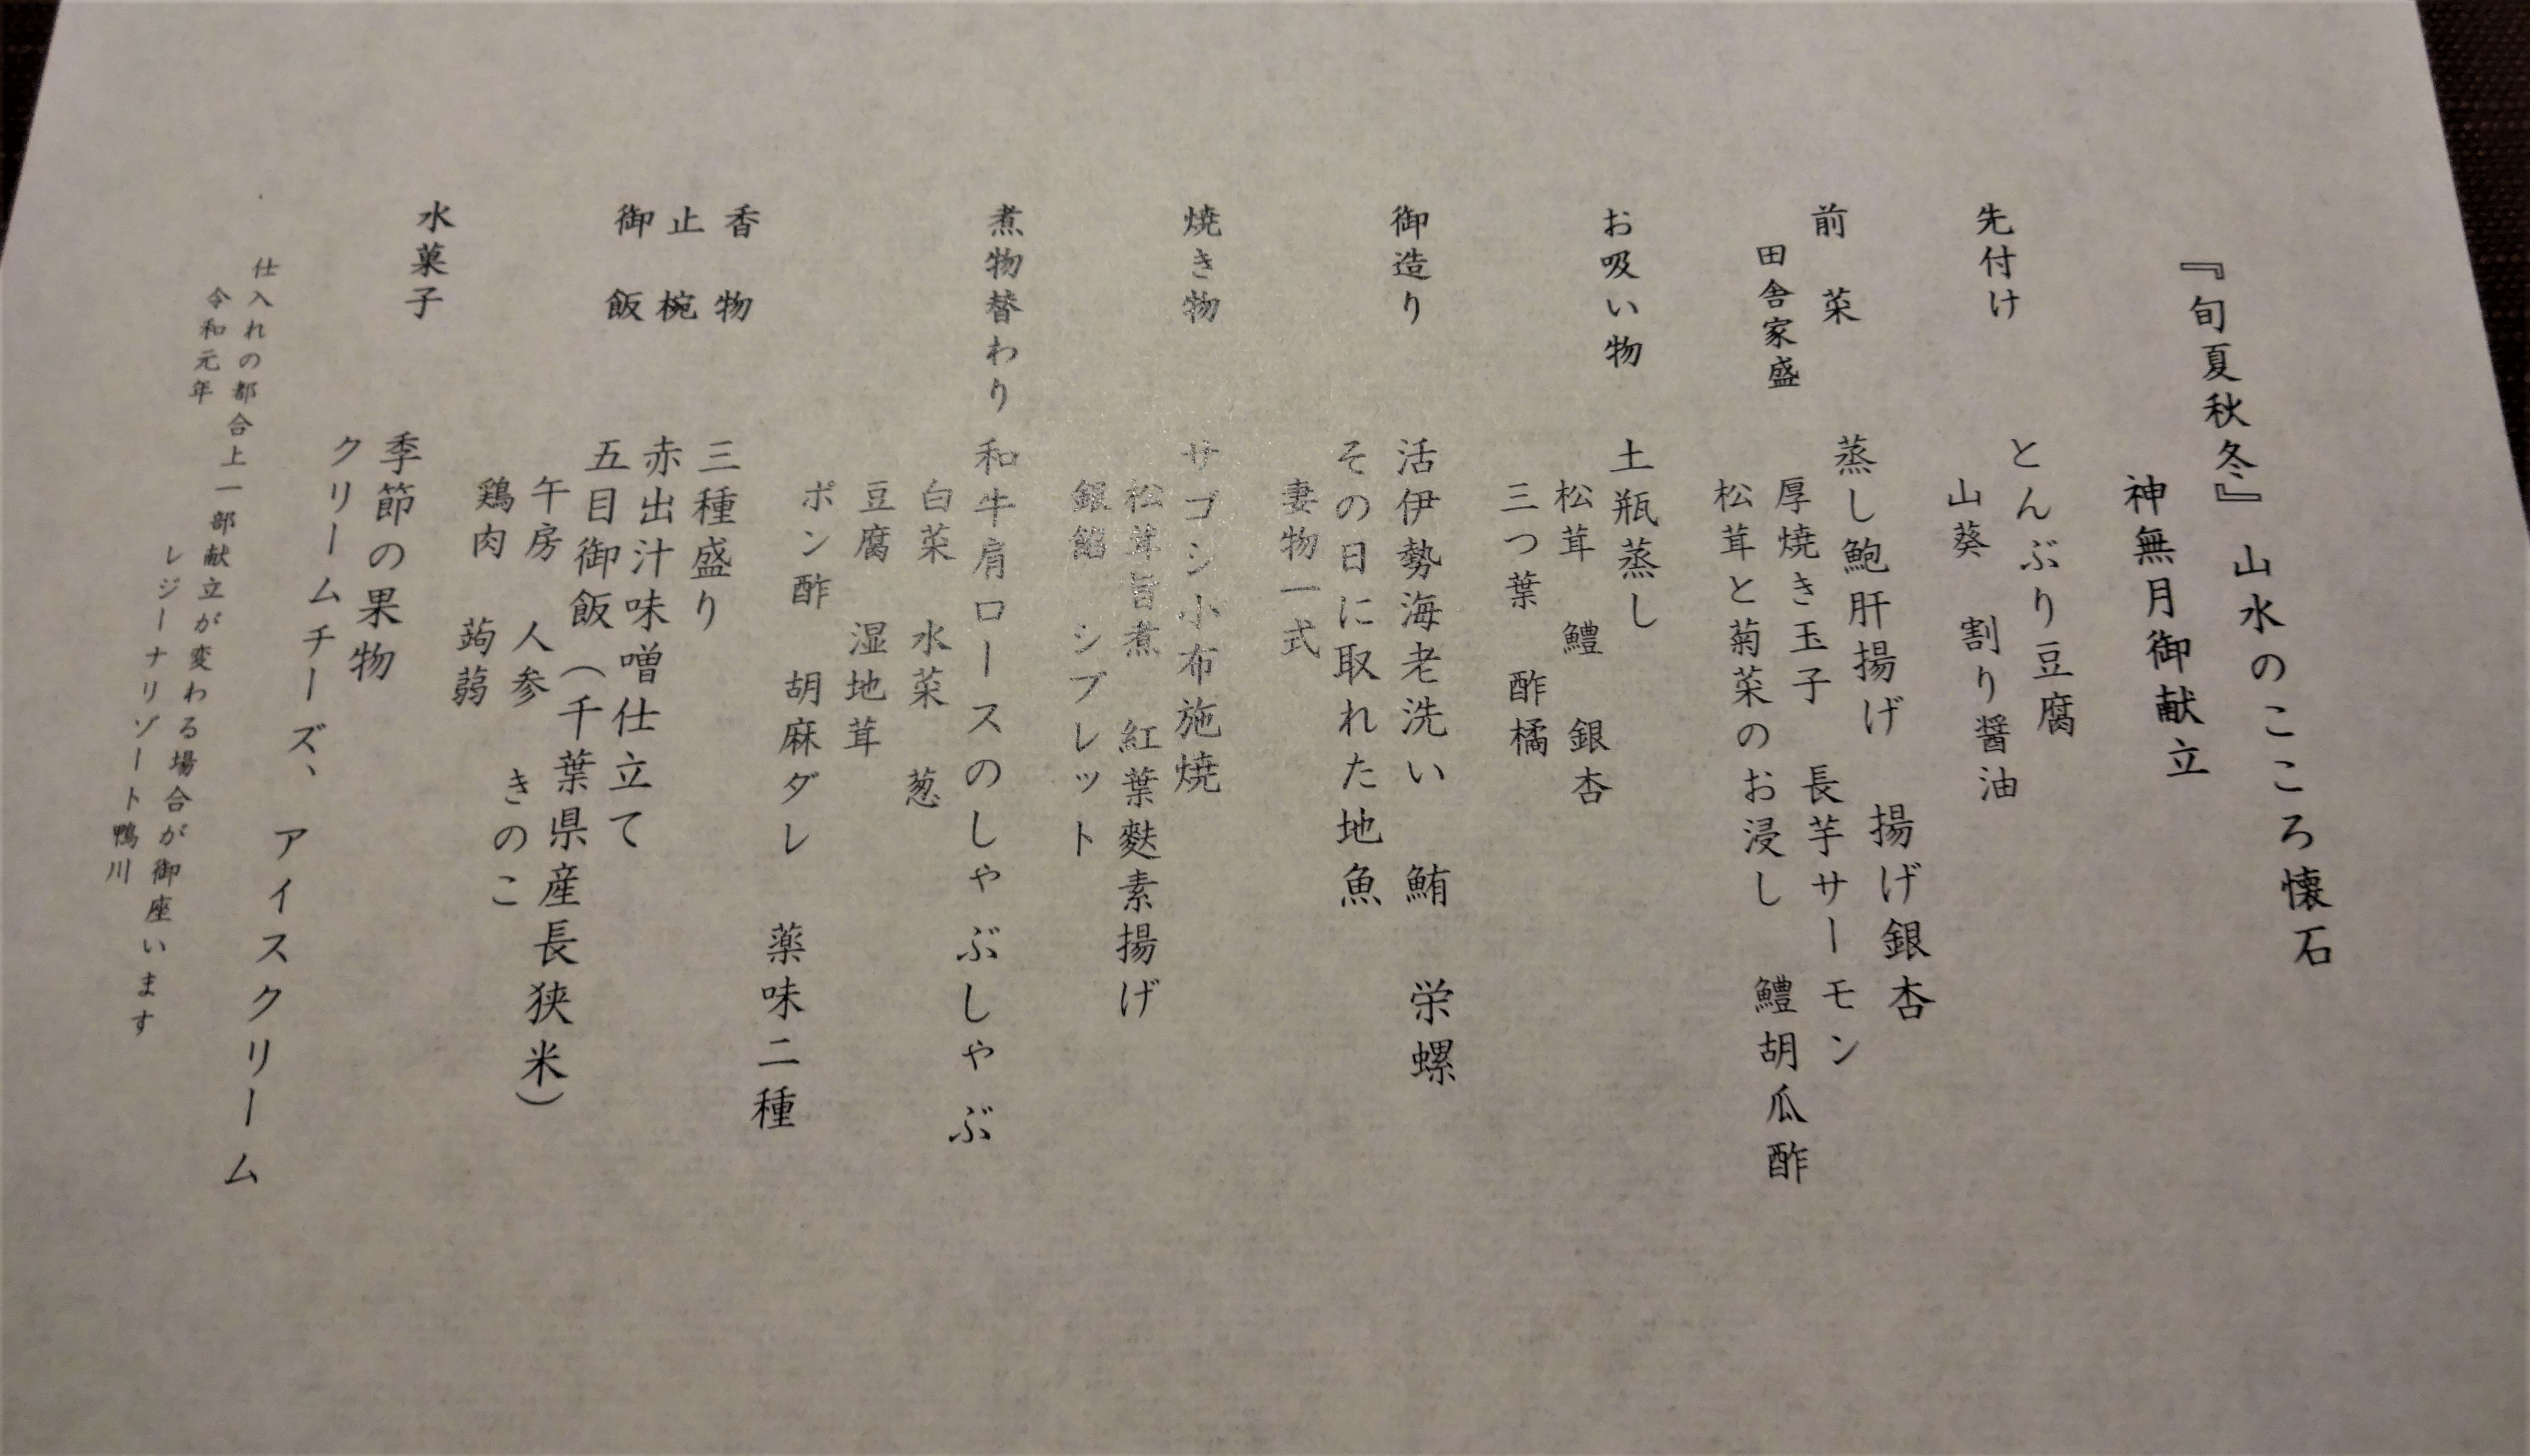 『旬夏秋冬』山水のこころ懐石
神無月御献立
先付け　とんぶり豆腐
山葵　割り醤油
前菜　蒸し鮑肝揚げ　揚げ銀杏
田舎家盛　厚焼き玉子　長芋サーモン
松茸と菊菜のお浸し　鱧胡瓜酢
お吸い物　土瓶蒸し
松茸　鱧　銀杏
三つ葉　酢橘
御造り　活伊勢海老洗い　鮪　栄螺
その日に取れた地魚
妻物一式
焼き物　サゴシ小布施焼
松茸旨煮　紅葉麩素揚げ
銀餡　シブレット
煮物替わり　和牛肩ロースのしゃぶしゃぶ
白菜　水菜　葱
豆腐　湿地茸
ポン酢　胡麻ダレ　薬味二種
香物　三種盛り
止椀　赤出汁味噌仕立て
御飯　五目御飯（千葉県産長狭米）
午房　人参　きのこ
鶏肉　蒟蒻
水菓子　季節の果物
クリームチーズ、アイスクリーム
仕入れの都合上一部献立が変わる場合が御座います
令和元年　レジーナリゾート鴨川